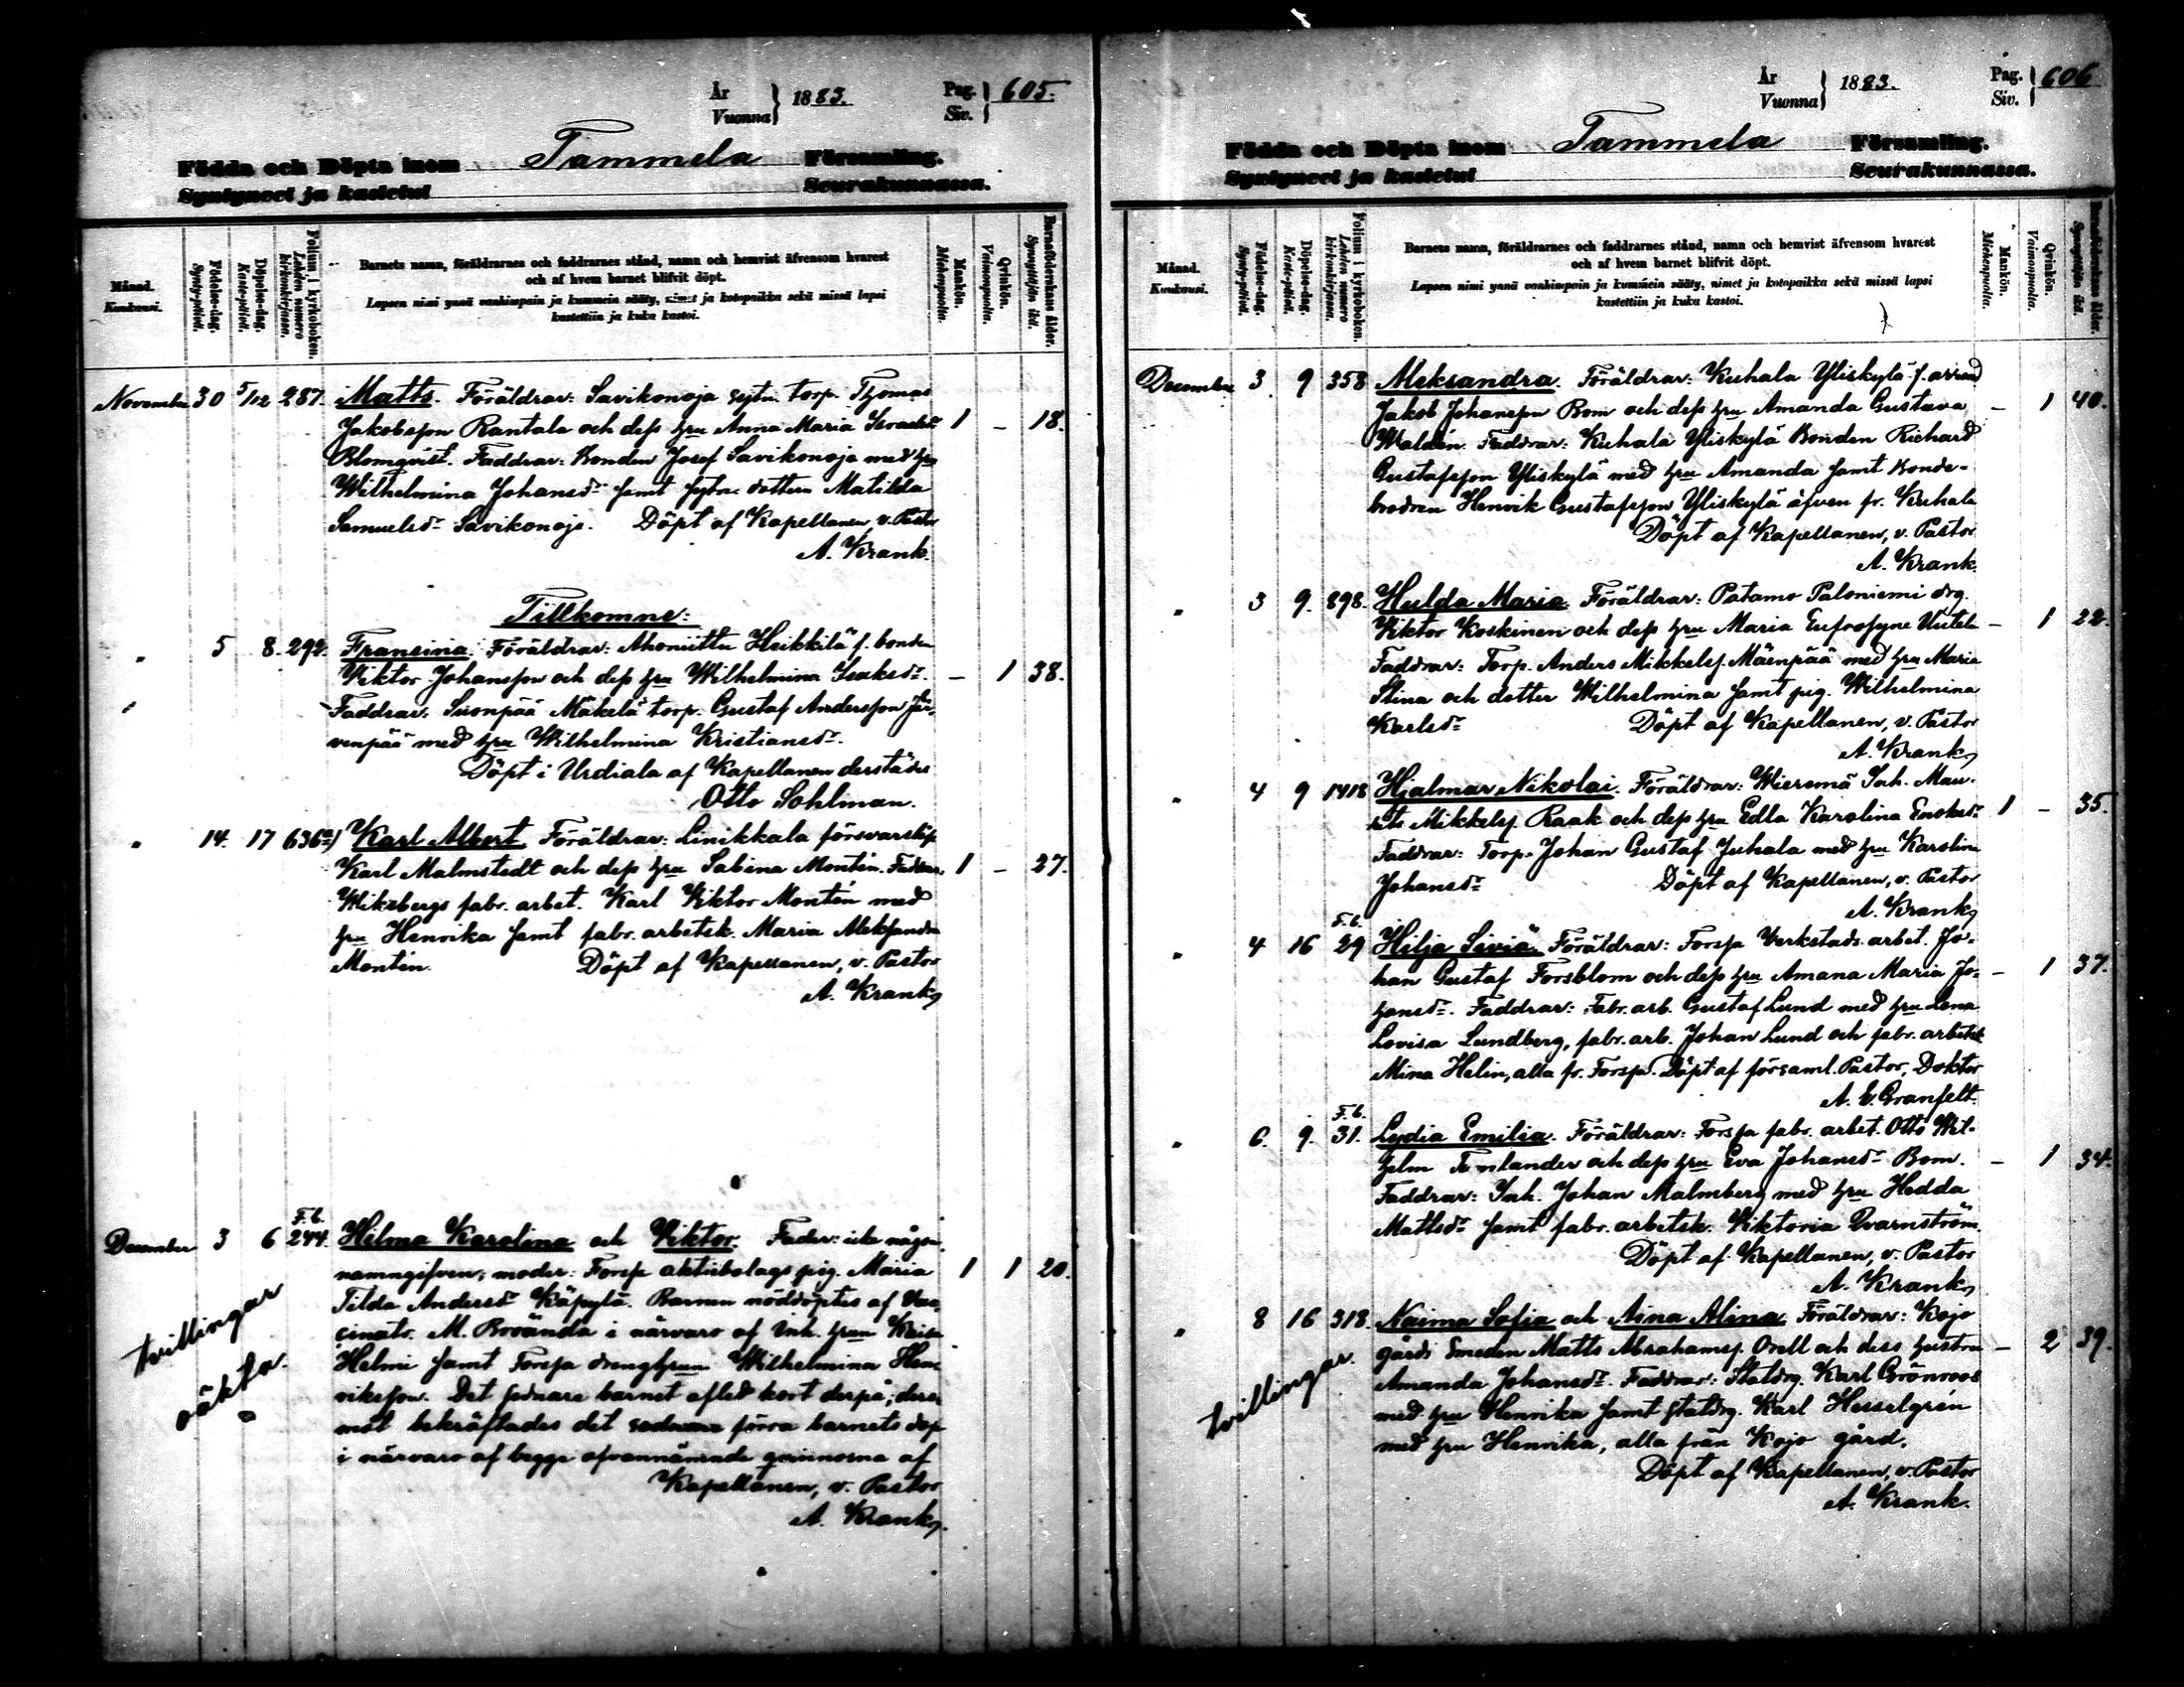 År
Vuonna } 1883.
Pag.
Siv. } 605.
Födda och Döpta inom Tammela Församling.
Syntyneet ja kastetut Seurakunnassa.
Månad.
Kuukausi.
Födelse-dag.
Synty-päivä.
Döpelse-dag.
Kaste-päivä.
Folium i kyrkoboken.
Lehden numero kirkonkirjassa.
Barnets namn, föräldrarnes och faddrarnes stånd, namn och hemvist äfvensom hvarest
och af hvem barnet blifvit döpt.
Lapsen nimi ynnä vanhimpain ja kummein sääty, nimet ja kotopaikka sekä missä lapsi
kastettiin ja kuka kastoi.
Mankön.
Miehenpuolta.
Qvinkön.
Vaimonpuolta.
Barnaföderskans ålder.
Synnyttäjän ikä.
November 30 5/12 287. Matts. Föräldrar: Savikonoja sytn. torp. Thomas
Jakobsson Rantala och dess hru Anna Maria Israelsd:r 1 – 18.
Blomqvist. Faddrar: Bonden Josef Savikonoja med hru
Wilhelmina Johansd:r samt sytn. dottern Matilda
Samuelsd:r Savikonoja. Döpt af Kapellanen, v. Pastor
A. Krank.
Tillkomne:
" 5 8. 292. Fransina. Föräldrar: Ahoniittu Heikkilä f. bonden
Viktor Johansson och dess hru Wilhelmina Isaksd:r. – 1 38.
Faddrar: Suonpää Mäkelä torp. Gustaf Andersson Jär-
venpää med hru Wilhelmina Kristiansd:r.
Döpt i Urdiala af Kapellanen derstädes
Otto Sohlman.
" 14. 17 636a) Karl Albert. Föräldrar: Linikkala försvarslös
Karl Malmstedt och dess hru Sabina Montén. Faddrar: 1 – 27.
Wiksbergs fabr. arbet. Karl Viktor Montén med
hru Henrika samt fabr. arbetsk. Maria Aleksandra
Montén. Döpt af Kapellanen, v. Pastor
A. Krank
F.b.
December 3 6 244. Hilma Karolina och Viktor. Fader: icke någon
namngifven; moder: Forssa aktiebolags pig. Maria 1 1 20.
Tilda Andersd:r Käpylä. Barnen nöddöptes af Vac-
cinatr. M. Broända i närvaro af Inh. hrun Kaisa
Helmi samt Forssa drenghrun Wilhelmina Hen-
riksson. Det sednare barnet afled kort derpå; dere-
mot bekräftades det sednare förra barnets dop
i närvaro af begge ofvannämnde qvinnorna af
Kapellanen, v. Pastor
A. Krank.
tvillingar
oäkta.
År
Vuonna } 1883.
Pag.
Siv. } 606
Födda och Döpta inom Tammela Församling.
Syntyneet ja kastetut Seurakunnassa.
Månad.
Kuukausi.
Födelse-dag.
Synty-päivä.
Döpelse-dag.
Kaste-päivä.
Folium i kyrkoboken.
Lehden numero kirkonkirjassa.
Barnets namn, föräldrarnes och faddrarnes stånd, namn och hemvist äfvensom hvarest
och af hvem barnet blifvit döpt.
Lapsen nimi ynnä vanhimpain ja kummein sääty, nimet ja kotopaikka sekä missä lapsi
kastettiin ja kuka kastoi.
Mankön.
Miehenpuolta.
Qvinkön.
Vaimonpuolta.
Barnaföderskans ålder.
Synnyttäjän ikä.
December 3 9 358 Aleksandra. Föräldrar: Kuhala Yliskylä f. arrend
Jakob Johansson Bom och dess hru Amanda Gustava – 1 40.
Waldén. Faddrar: Kuhala Yliskylä Bonden Richard
Gustafsson Yliskylä med hru Amanda samt bonde-
brodren Henrik Gustafsson Yliskylä äfven fr. Kuhala
Döpt af Kapellanen, v. Pastor
A. Krank.
" 3 9. 898. Hulda Maria. Föräldrar: Patamo Paloniemi drg.
Viktor Koskinen och dess hru Maria Eufrosyne Uutela – 1 22.
Faddrar: Torp. Anders Mikkelss. Mäenpää med hru Maria
Stina och dotter Wilhelmina samt pig. Wilhelmina
Karlsd:r Döpt af Kapellanen, v. Pastor
A. Krank
" 4 9 1418 Hjalmar Nikolai. Föräldrar: Wieremä Inh. Mau-
rits Mikkelss. Raak och dess hru Edla Karolina Enoksd:r 1 – 35.
Faddrar: Torp. Johan Gustaf Juhala med hru Karolina
Johansd:r Döpt af Kapellanen, v. Pastor
A. Krank
F.b.
" 4 16 29 Hilja Siviä. Föräldrar: Forssa Verkstads arbet. Jo-
han Gustaf Forsblom och dess hru Amana Maria Jo- – 1 37.
hansd:r. Faddrar: Fabr. arb. Gustaf Lund med hru Lena
Lovisa Lundberg, fabr. arb. Johan Lund och fabr. arbetsk
Mina Helin, alla fr. Forssa. Döpt af församl. Pastor, Doktor
A. E. Granfelt.
F.b.
" 6. 9. 31. Lydia Emilia. Föräldrar: Forssa fabr. arbet. Otto Wil-
helm Fenlander och dess hru Eva Johansd:r Bom. – 1 34.
Faddrar: Inh. Johan Malmberg med hru Hedda
Mattsd:r samt fabr. arbetsk. Viktoria Qvarnström.
Döpt af Kapellanen, v. Pastor
A. Krank
" 8 16 318. Naima Sofia och Aina Alina. Föräldrar: Kojo
gårds Smeden Matts Abrahamss. Orell och dess hustru – 2 39.
Amanda Johansd:r. Faddrar: Statdrg. Karl Grönroos
med hru Henrika samt statdrg. Karl Hesselgrén
med hru Henrika, alla från Kojo gård.
Döpt af Kapellanen, v. Pastor
A. Krank.
tvillingar.